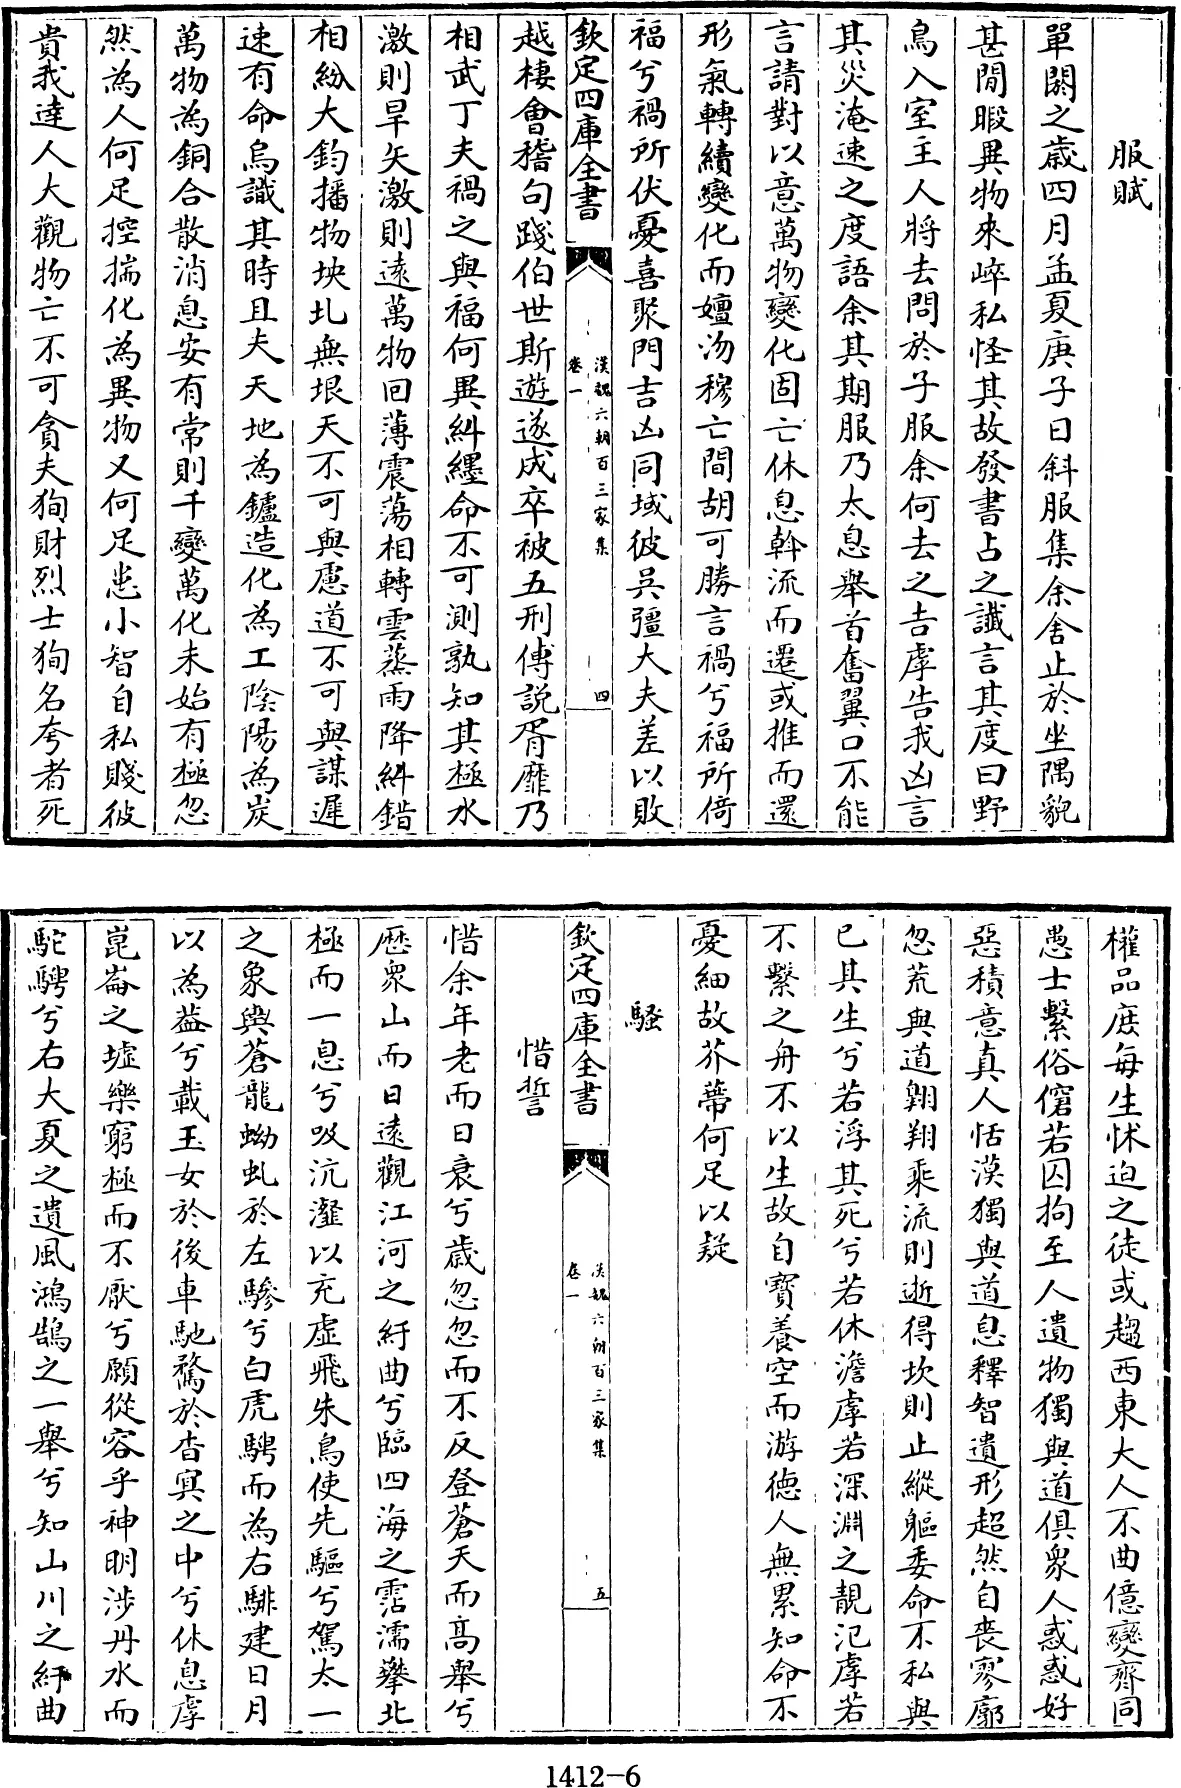 服賦
單閼之歲四月孟夏庚子日斜服集余舍止於坐隅貌
甚閒暇異物來崪私怪其故發書占之讖言其度曰野
鳥入室主人將去問於子服余何去之吉虖告我凶言
其災淹速之度語余其期服乃太息舉首奮翼口不能
言請對以意萬物變化固亡休息斡流而遷或推而還
形氣轉續變化而嬗沕穆亡間胡可勝言禍兮福所倚
福兮禍所伏憂喜聚門吉凶同域彼吳彊大夫差以敗
欽定四庫全書
漢魏六朝百三家集
卷一
四
越棲會稽句踐伯世斯遊遂成卒被五刑傅説胥靡乃
相武丁夫禍之與福何異糾纆命不可測孰知其極水
激則旱矢激則遠萬物回薄震蕩相轉雲蒸雨降糾錯
相紛大鈞播物坱圠無垠天不可與慮道不可與謀遲
速有命烏識其時且夫天地為鑪造化為工陰陽為炭
萬物為銅合散消息安有常則千變萬化未始有極忽
然為人何足控揣化為異物又何足患小智自私賤彼
貴我達人大觀物亡不可貪夫狥財烈士狥名夸者死
權品庶每生怵迫之徒或趨西東大人不曲億變齊同
愚士繫俗僒若囚拘至人遺物獨與道俱衆人惑惑好
惡積意真人恬漠獨與道息釋智遺形超然自喪寥廓
忽荒與道翺翔乘流則逝得坎則止縱軀委命不私與
已其生兮若浮其死兮若休澹虖若深淵之靚氾虖若
不繫之舟不以生故自寳養空而游德人無累知命不
憂細故芥蔕何足以疑
騷
欽定四庫全書
漢魏六朝百三家集
卷一
五
惜誓
惜余年老而日衰兮歲忽忽而不反登蒼天而高舉兮
歷衆山而日遠觀江河之紆曲兮臨四海之霑濡攀北
極而一息兮吸沆瀣以充虛飛朱鳥使先驅兮駕太一
之象輿蒼龍蚴虬於左驂兮白虎騁而為右騑建日月
以為葢兮載玉女於後車馳騖於杳冥之中兮休息虖
崑崙之墟樂窮極而不厭兮願從容乎神明涉丹水而
駝騁兮右大夏之遺風鴻鵠之一舉兮知山川之紆曲
1412-6